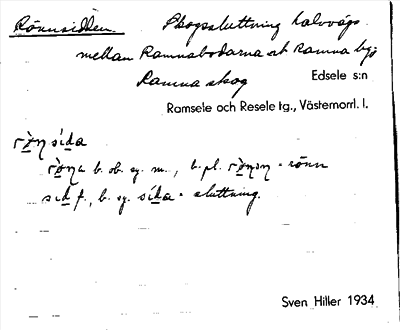 Rönnsidden. Skogssluttning halvvägs
mellan Ramnabodarna och Ramna by,
Ramna skog Edsele s:n
Ramsele och Resele tg., Västernorrl. l.
rò̱ṉ sída
rò̱ṉa b. ob. sg. m., b. pl. rò̱ṉɔn = rönn
sid f., b. sg. sída = sluttning.
Sven Hiller 1934